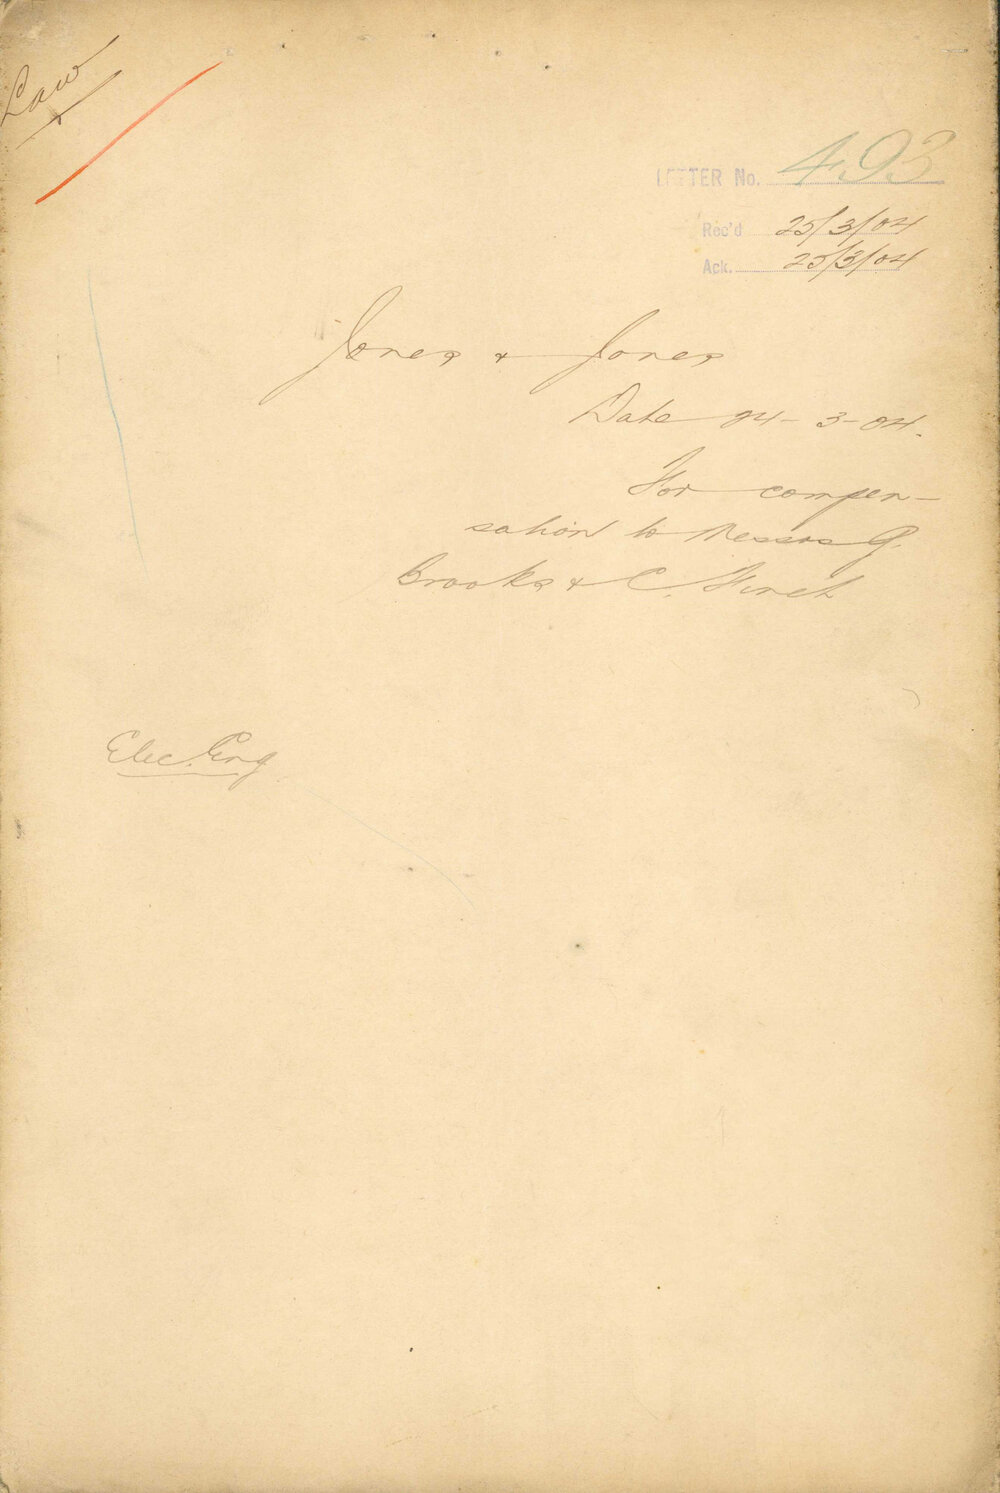 Law
LETTER No. 493
Rec'd 25/3/04
Ack. 25/3/04
Jones & Jones
Date 24-3-04.
For compen-
sation to Messrs G.
Brooks & C. Finch
Elec. Eng.